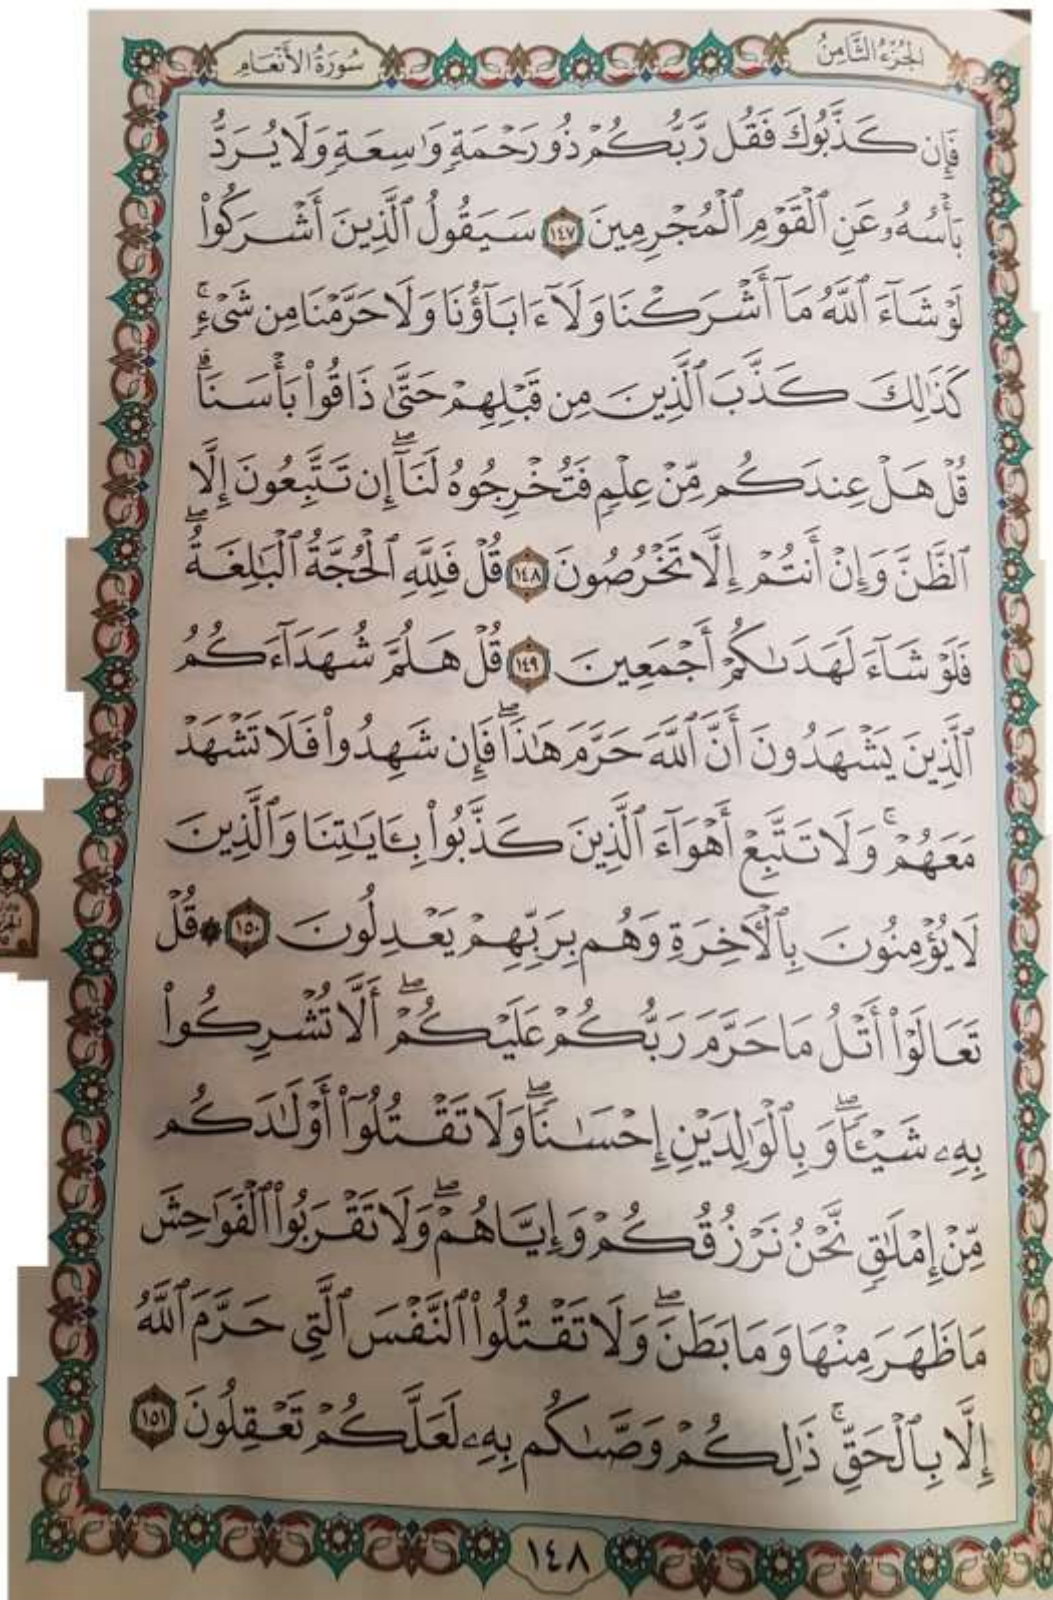 الجُزْءُ الثَّامِنُ
سُورَةُ الأَنْعَامِ
فَإِن كَذَّبُوكَ فَقُل رَّبُّكُمْ ذُو رَحْمَةٍ وَٰسِعَةٍ وَلَا يُرَدُّ
بَأْسُهُۥ عَنِ ٱلْقَوْمِ ٱلْمُجْرِمِينَ ١٤٧ سَيَقُولُ ٱلَّذِينَ أَشْرَكُوا۟
لَوْ شَآءَ ٱللَّهُ مَآ أَشْرَكْنَا وَلَآ ءَابَآؤُنَا وَلَا حَرَّمْنَا مِن شَىْءٍۚ
كَذَٰلِكَ كَذَّبَ ٱلَّذِينَ مِن قَبْلِهِمْ حَتَّىٰ ذَاقُوا۟ بَأْسَنَاۗ
قُلْ هَلْ عِندَكُم مِّنْ عِلْمٍ فَتُخْرِجُوهُ لَنَآۖ إِن تَتَّبِعُونَ إِلَّا
ٱلظَّنَّ وَإِنْ أَنتُمْ إِلَّا تَخْرُصُونَ ١٤٨ قُلْ فَلِلَّهِ ٱلْحُجَّةُ ٱلْبَٰلِغَةُۖ
فَلَوْ شَآءَ لَهَدَىٰكُمْ أَجْمَعِينَ ١٤٩ قُلْ هَلُمَّ شُهَدَآءَكُمُ
ٱلَّذِينَ يَشْهَدُونَ أَنَّ ٱللَّهَ حَرَّمَ هَٰذَاۖ فَإِن شَهِدُوا۟ فَلَا تَشْهَدْ
مَعَهُمْۚ وَلَا تَتَّبِعْ أَهْوَآءَ ٱلَّذِينَ كَذَّبُوا۟ بِـَٔايَٰتِنَا وَٱلَّذِينَ
لَا يُؤْمِنُونَ بِٱلْأَخِرَةِ وَهُم بِرَبِّهِمْ يَعْدِلُونَ ١٥٠ ۞ قُلْ
تَعَالَوْا۟ أَتْلُ مَا حَرَّمَ رَبُّكُمْ عَلَيْكُمْۖ أَلَّا تُشْرِكُوا۟
بِهِۦ شَيْـًٔاۖ وَبِٱلْوَٰلِدَيْنِ إِحْسَٰنًاۖ وَلَا تَقْتُلُوٓا۟ أَوْلَٰدَكُم
مِّنْ إِمْلَٰقٍ نَّحْنُ نَرْزُقُكُمْ وَإِيَّاهُمْۖ وَلَا تَقْرَبُوا۟ ٱلْفَوَٰحِشَ
مَا ظَهَرَ مِنْهَا وَمَا بَطَنَۖ وَلَا تَقْتُلُوا۟ ٱلنَّفْسَ ٱلَّتِى حَرَّمَ ٱللَّهُ
إِلَّا بِٱلْحَقِّۚ ذَٰلِكُمْ وَصَّىٰكُم بِهِۦ لَعَلَّكُمْ تَعْقِلُونَ ١٥١
١٤٨